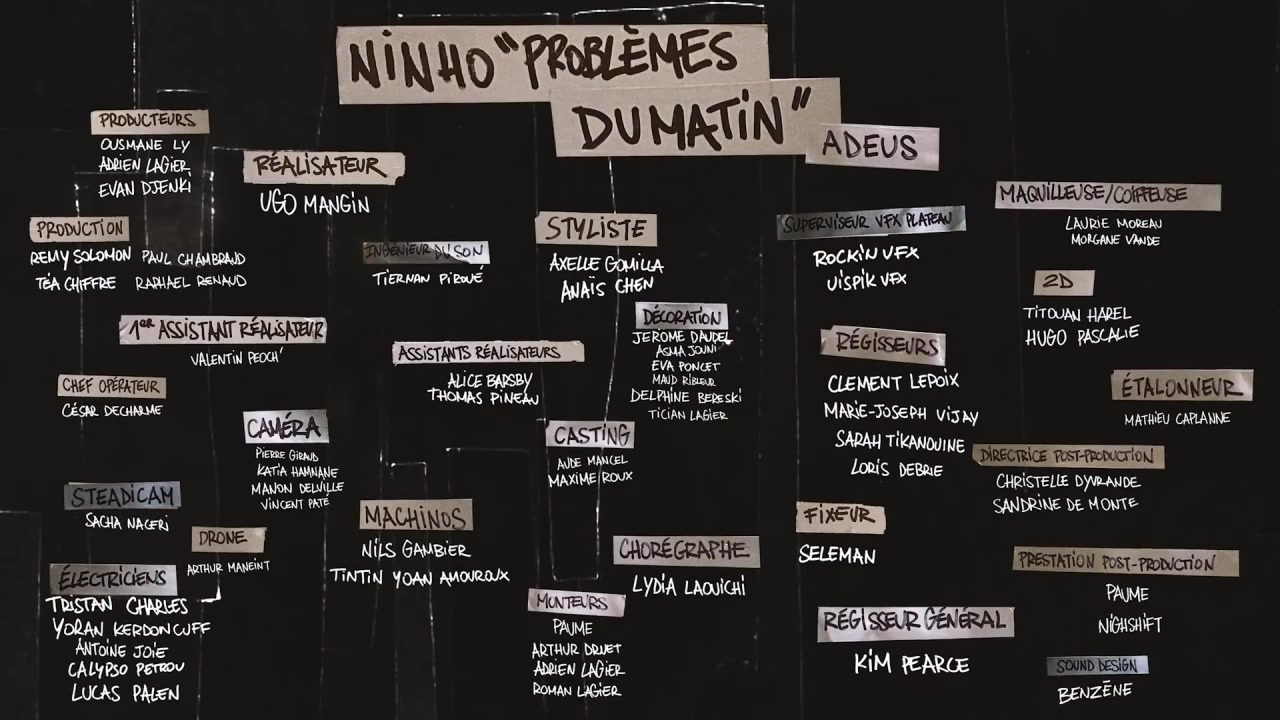 NINHO "PROBLÈMES
DU MATIN"
ADEUS
PRODUCTEURS
OUSMANE LY
ADRIEN LAGIER
EVAN DJENKI
RÉALISATEUR
UGO MANGIN
PRODUCTION
REMY SOLOMON PAUL CHAMBRAUD
TÉA CHIFFRE RAPHAEL RENAUD
INGÉNIEUR DU SON
TIERNAN PIROUÉ
STYLISTE
AXELLE GOMILLA
ANAÏS CHEN
SUPERVISEUR VFX PLATEAU
ROCKIN VFX
UISPIK VFX
MAQUILLEUSE/COIFFEUSE
LAURIE MOREAU
MORGANE VANDE
2D
TITOUAN HAREL
HUGO PASCALIE
1ER ASSISTANT RÉALISATEUR
VALENTIN PEOCH'
ASSISTANTS RÉALISATEURS
ALICE BARSBY
THOMAS PINEAU
DÉCORATION
JEROME DAUDEL
ASMA JOUNI
EVA PONCET
MAUD RIBLEUR
DELPHINE BERESKI
TICIAN LAGIER
RÉGISSEURS
CLEMENT LEPOIX
MARIE-JOSEPH VIJAY
SARAH TIKANOUINE
LORIS DEBRIE
ÉTALONNEUR
MATHIEU CAPLANNE
CHEF OPÉRATEUR
CÉSAR DECHARME
CAMÉRA
PIERRE GIRAUD
KATIA HAMNANE
MANON DELVILLE
VINCENT PATÉ
CASTING
AUDE MANCEL
MAXIME ROUX
DIRECTRICE POST-PRODUCTION
CHRISTELLE DYVRANDE
SANDRINE DE MONTE
STEADICAM
SACHA NACERI
DRONE
ARTHUR MANEINT
MACHINOS
NILS GAMBIER
TINTIN YOAN AMOUROUX
CHORÉGRAPHE
LYDIA LAOUICHI
FIXEUR
SELEMAN
PRESTATION POST-PRODUCTION
PAUME
NIGHSHIFT
ÉLECTRICIENS
TRISTAN CHARLES
YORAN KERDONCUFF
ANTOINE JOIE
CALYPSO PETROU
LUCAS PALEN
MONTEURS
PAUME
ARTHUR DRUET
ADRIEN LAGIER
ROMAN LAGIER
RÉGISSEUR GÉNÉRAL
KIM PEARCE
SOUND DESIGN
BENZÈNE